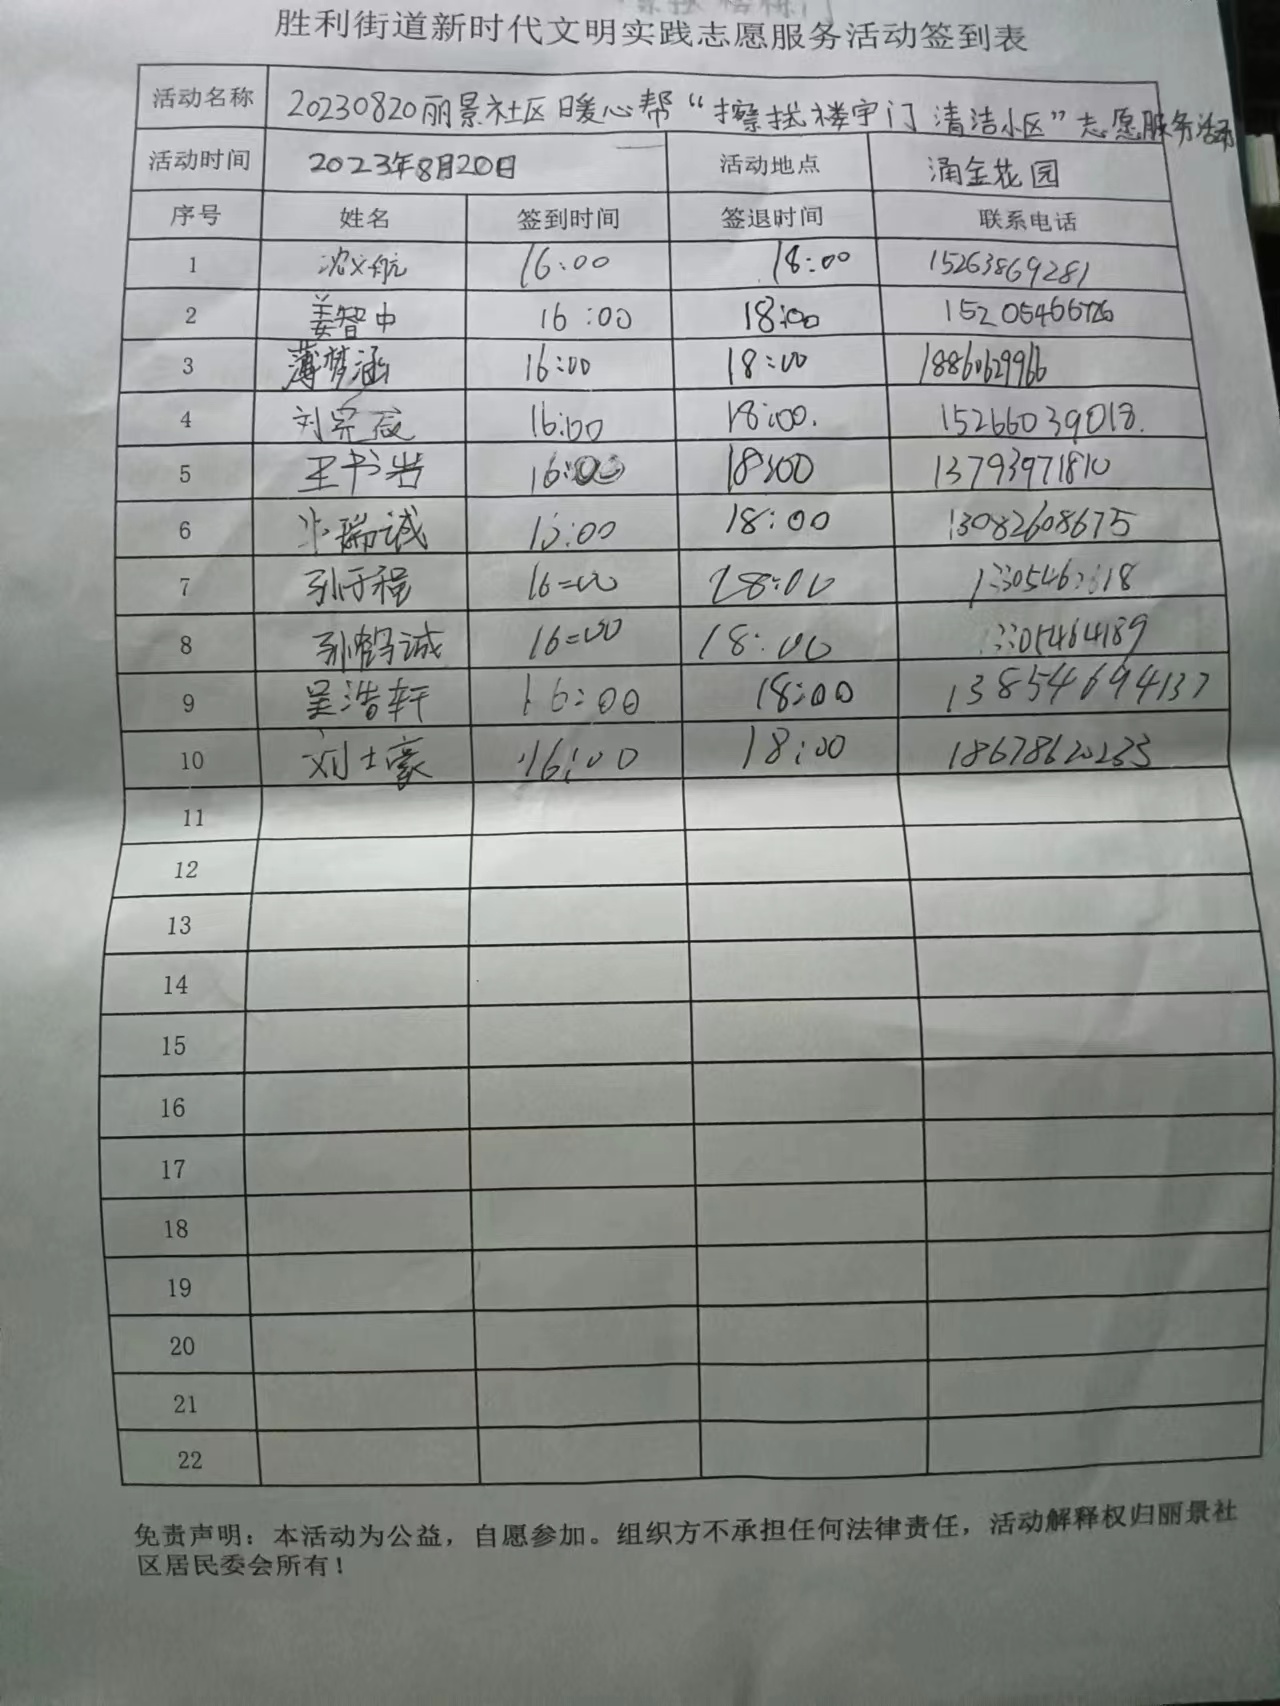 胜利街道新时代文明实践志愿服务活动签到表
活动名称 20230820丽景社区暖心帮“擦拭楼宇门 清洁小区”志愿服务活动
活动时间 2023年8月20日 活动地点 涌金花园
序号 姓名 签到时间 签退时间 联系电话
1 沈义航 16:00 18:00 15263869281
2 姜智中 16:00 18:00
3 薄梦涵 16:00 18:00 18860629966
4 16:00 18:00. 15266039018.
5 王书岩 16:00 18:00 13793971810
6 瑞诚 18:00 13082608675
7 16=00 18:00
8 孙鹤诚 16=00 18:00
9 吴浩轩 16:00 18:00 13854694137
10 刘士豪 16:00 18:00 18678620233
11
12
13
14
15
16
17
18
19
20
21
22
免责声明：本活动为公益，自愿参加。组织方不承担任何法律责任，活动解释权归丽景社
区居民委会所有！